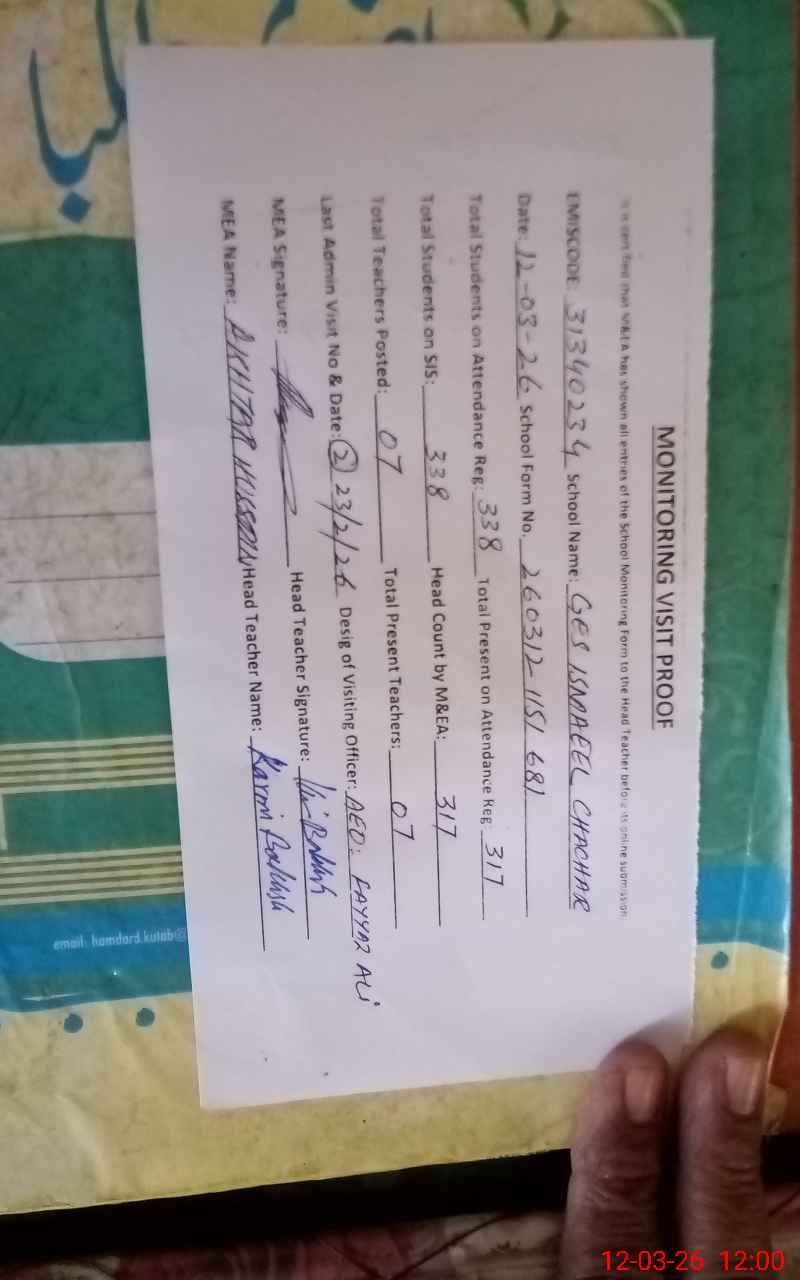 MONITORING VISIT PROOF
It is certified that M&EA has shown all entries of the School Monitoring Form to the Head Teacher before its online submission
EMISCODE: 31340234 School Name: GES ISMAEEL CHACHAR
Date: 12-03-26 School Form No. 260312-1151681
Total Students on Attendance Reg: 338 Total Present on Attendance Reg: 317
Total Students on SIS: 338 Head Count by M&EA: 317
Total Teachers Posted: 07 Total Present Teachers: 07
Last Admin Visit No & Date: (2) 23/2/26 Desig of Visiting Officer: AEO: FAYYAZ ALi
MEA Signature: Head Teacher Signature:
MEA Name: AKHTAR HUSSAIN Head Teacher Name: Karim Bakhsh
email: hamdard.kutab@
12-03-26 12:00